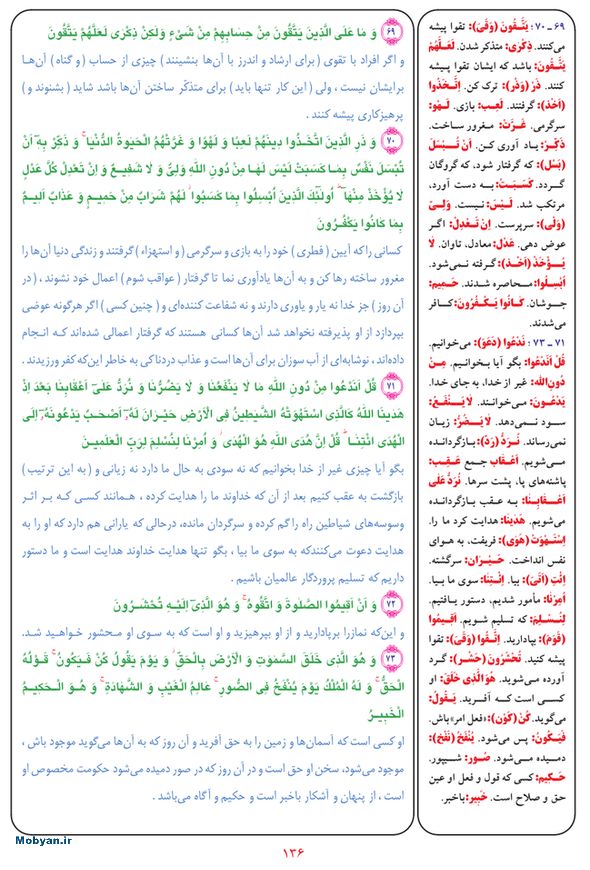 ۶۹ وَ مَا عَلَى الَّذِينَ يَتَّقُونَ مِنْ حِسَابِهِمْ مِنْ شَىْءٍ وَلَكِنْ ذِكْرَى لَعَلَّهُمْ يَتَّقُونَ
و اگر افراد با تقوی ( برای ارشاد و اندرز با آن‌ها بنشینند) چیزی از حساب (و گناه) آن‌ها
برایشان نیست ، ولی (این کار تنها باید) برای متذکّر ساختن آن‌ها باشد شاید (بشنوند و)
پرهیزکاری پیشه کنند .
۷۰ وَ ذَرِ الَّذِينَ اتَّخَذُوا دِينَهُمْ لَعِبًا وَ لَهْوًا وَ غَرَّتْهُمُ الْحَيَوةُ الدُّنْيَا ۚ وَ ذَكِّرْ بِهِ أَنْ
تُبْسَلَ نَفْسٌ بِمَا كَسَبَتْ لَيْسَ لَهَا مِنْ دُونِ اللهِ وَلِىٌّ وَ لَا شَفِيعٌ وَ اِنْ تَعْدِلْ كُلَّ عَدْلٍ
لَا يُؤْخَذْ مِنْهَا ۗ أُولَئِكَ الَّذِينَ أُبْسِلُوا بِمَا كَسَبُوا ۖ لَهُمْ شَرَابٌ مِنْ حَمِيمٍ وَ عَذَابٌ اَلِيمٌ
بِمَا كَانُوا يَكْفُرُونَ
کسانی را که آیین ( فطری ) خود را به بازی و سرگرمی ( و استهزاء ) گرفتند و زندگی دنیا آن‌ها را
مغرور ساخته رها کن و به آن‌ها یادآوری نما تا گرفتار ( عواقب شوم ) اعمال خود نشوند ، ( در
آن روز ) جز خدا نه یار و یاوری دارند و نه شفاعت کننده‌ای و ( چنین کسی ) اگر هرگونه عوضی
بپردازد از او پذیرفته نخواهد شد آن‌ها کسانی هستند که گرفتار اعمالی شده‌اند کـه انجام
داده‌اند ، نوشابه‌ای از آب سوزان برای آن‌ها است و عذاب دردناکی به خاطر این‌که کفر ورزیدند .
۷۱ قُلْ اَنَدْعُوا مِنْ دُونِ اللهِ مَا لَا يَنْفَعُنَا وَ لَا يَضُرُّنَا وَ نُرَدُّ عَلَى أَعْقَابِنَا بَعْدَ اِذْ
هَدَينَا اللهُ كَالَّذِى اسْتَهْوَتْهُ الشَّيَطِينُ فِى الْأَرْضِ حَيْرَانَ لَهُ أَصْحَبٌ يَدْعُونَهُ اِلَى
الْهُدَى ائْتِنَا ۗ قُلْ اِنَّ هُدَى اللهِ هُوَ الْهُدَى ۖ وَ اُمِرْنَا لِنُسْلِمَ لِرَبِّ الْعَلَمِينَ
بگو آیا چیزی غیر از خدا بخوانیم که نه سودی به حال ما دارد نه زیانی و (به این ترتیب )
بازگشت به عقب کنیم بعد از آن که خداوند ما را هدایت کرده ، همانند کسی کـه بر اثر
وسوسه‌های شیاطین راه را گم کرده و سرگردان مانده، درحالی که یارانی هم دارد که او را به
هدایت دعوت می‌کنندکه به سوی ما بیا ، بگو تنها هدایت خداوند هدایت است و ما دستور
داریم که تسلیم پروردگار عالمیان باشیم .
۷۲ وَ اَنْ اَقِيمُوا الصَّلَوةَ وَ اتَّقُوهُ ۚ وَ هُوَ الَّذِى اِلَيْهِ تُحْشَرُونَ
و این‌که نماز را برپادارید و از او بپرهیزید و او است که به سوی او محشور خواهید شد.
۷۳ وَ هُوَ الَّذِى خَلَقَ السَّمَوَتِ وَ الْأَرْضَ بِالْحَقِّ ۖ وَ يَوْمَ يَقُولُ كُنْ فَيَكُونُ ۚ قَوْلُهُ
الْحَقُّ ۚ وَ لَهُ الْمُلْكُ يَوْمَ يُنْفَخُ فِى الصُّورِ ۚ عَالِمُ الْغَيْبِ وَ الشَّهَادَةِ ۚ وَ هُوَ الْحَكِيمُ
الْخَبِيرُ
او کسی است که آسمان‌ها و زمین را به حق آفرید و آن روز که به آن‌ها می‌گوید موجود باش ،
موجود می‌شود، سخن او حق است و در آن روز که در صور دمیده می‌شود حکومت مخصوص او
است ، از پنهان و آشکار باخبر است و حکیم و آگاه می‌باشد .
۶۹ ـ ۷۰ : يَتَّقُونَ (وَقَىَ): تقوا پیشه
می‌کنند. ذِكْرَى: متذکر شدن. لَعَلَّهُمْ
يَتَّقُونَ: باشد که ایشان تقوا پیشه
کنند. ذَرْ (وَذَرَ): ترک کن. اِتَّخَذُوا
(اَخَذَ): گرفتند. لَعِب: بازی. لَهْو:
سرگرمی. غَرَّتْ: مغرور ساخت.
ذَكِّرْ: یاد آوری کن. اَنْ تُبْسَلَ
(بَسَلَ): که گرفتار شود، که گروگان
گردد. كَسَبَتْ: به دست آورد،
مرتکب شد. لَيْسَ: نیست. وَلِىّ
(وَلَى): سرپرست. اِنْ تَعْدِلْ: اگر
عوض دهی. عَدْل: معادل، تاوان. لَا
يُؤْخَذْ (اَخَذَ): گرفته نمی‌شود.
اُبْسِلُوا: محاصره شدند. حَمِيم:
جوشان. كَانُوا يَكْفُرُونَ: کافر
می‌شدند.
۷۱ ـ ۷۳ : نَدْعُوا (دَعَوَ): می‌خوانیم.
قُلْ اَنَدْعُوا: بگو آیا بخوانیم. مِنْ
دُونِ الله: غیر از خدا، به جای خدا.
يَدْعُونَ: می‌خوانند. لَا يَنْفَعُ:
سود نمی‌دهد. لَا يَضُرُّ: زیان
نمی‌رساند. نُرَدُّ (رَدَّ): بازگردانده
می‌شویم. اَعْقَاب جمع عَقِب:
پاشنه‌های پا، پشت سرها. نُرَدُّ عَلَى
اَعْقَابِنَا: به عقب بازگردانده
می‌شویم. هَدَيْنَا: هدایت کرد ما را.
اِسْتَهْوَتْ (هَوَى): فریفت، به هوای
نفس انداخت. حَيْرَان: سرگشته.
اِئْتِ (اَتَىَ): بیا. اِئْتِنَا: سوی ما بیا.
اُمِرْنَا: مأمور شدیم، دستور یافتیم.
لِنُسْلِمَ: که تسلیم شویم. اَقِيمُوا
(قَوَمَ): بپادارید. اِتَّقُوا (وَقَى): تقوا
پیشه کنید. تُحْشَرُونَ (حَشَرَ): گرد
آورده می‌شوید. هُوَ الَّذِى خَلَقَ: او
کسی است که آفرید. يَقُولُ:
می‌گوید. كُنْ (كَوَنَ): «فعل امر» باش.
فَيَكُونُ: پس می‌شود. يُنْفَخُ (نَفَخَ):
دمیده می‌شود. صُور: شیپور.
حَكِيم: کسی که قول و فعل او عین
حق و صلاح است. خَبِير: باخبر.
Mobyan.ir
۱۳۶